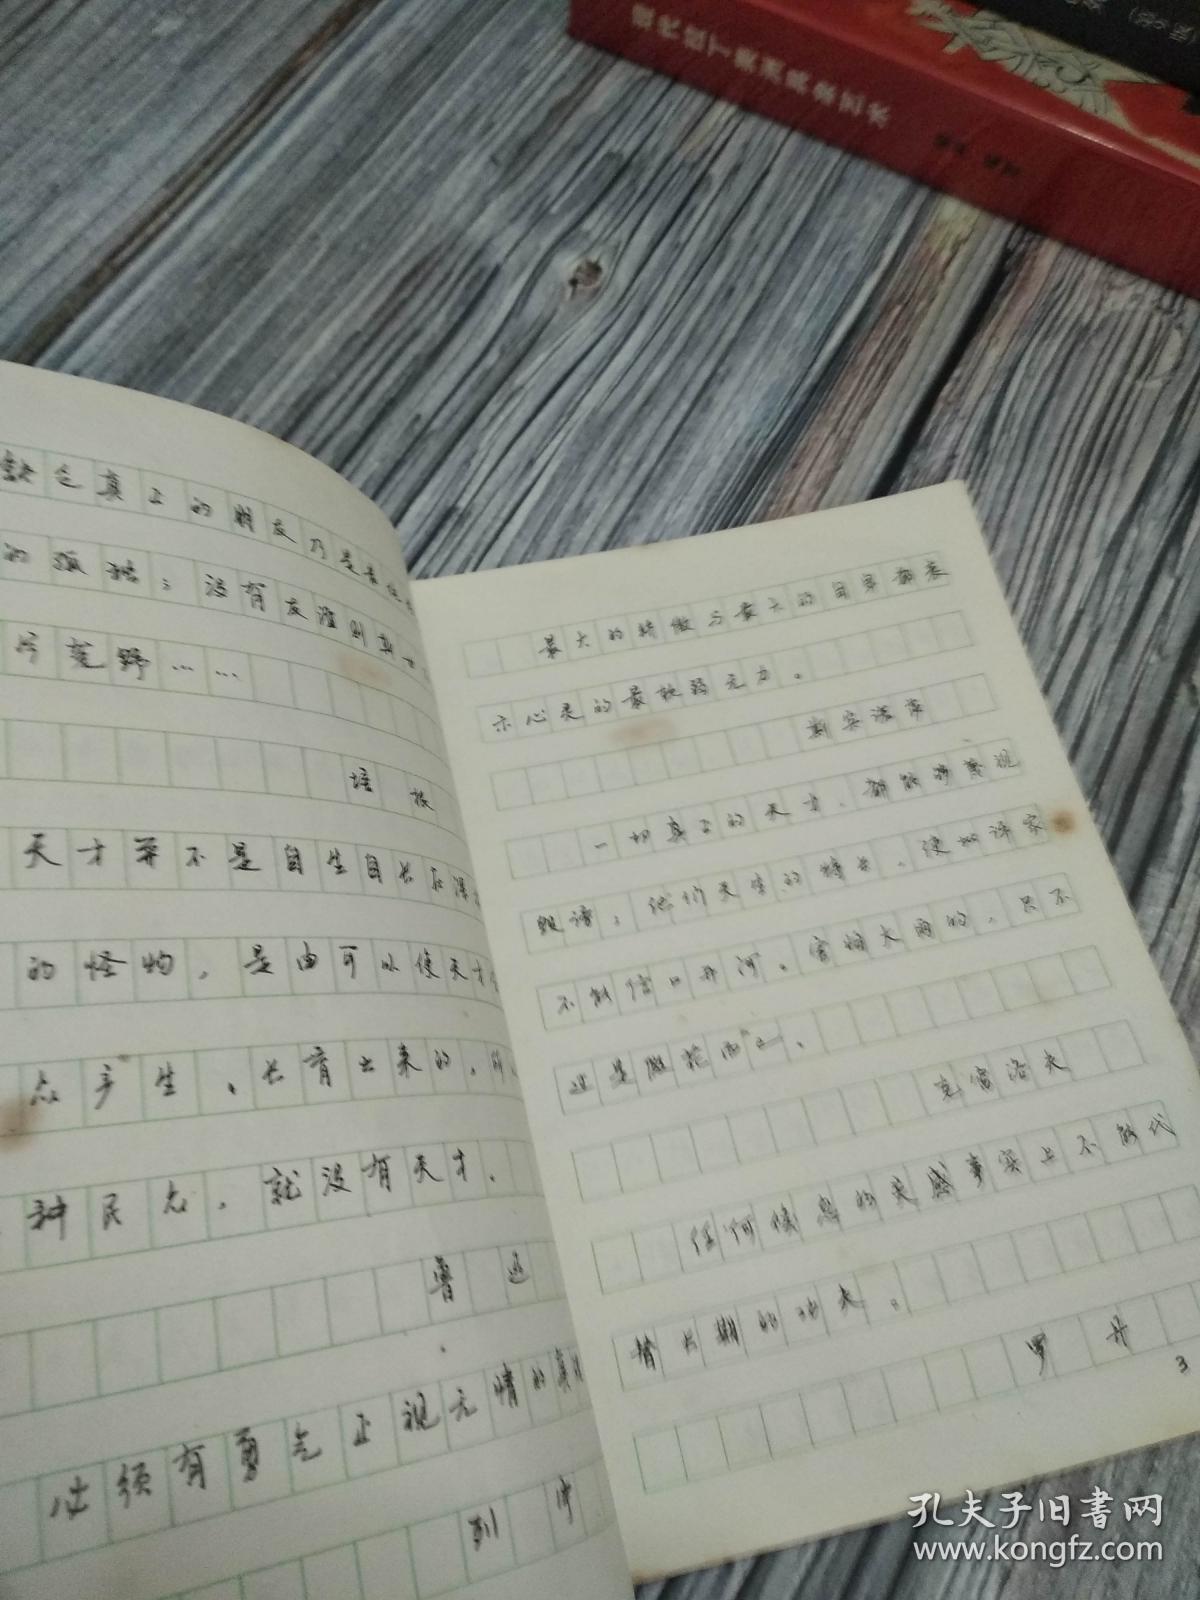 现代拉丁美洲民众艺术
缺乏真正的朋友乃是最
的孤独；没有友谊则斯世
片荒野……
培根
天才并不是自生自长在深
的怪物，是由可以使天才
众产生、长育出来的，所
种民众，就没有天才。
鲁迅
必须有勇气正视无情的真
列宁
最大的骄傲与最大的自卑都表
示心灵的最软弱无力。
斯宾诺莎
一切真正的天才，都能够蔑视
毁谤；他们天生的特长，使批评家
不能信口开河。害怕大雨的，只不
过是假花而已。
克雷洛夫
任何倏忽的灵感事实上不能代
替长期的功夫。
罗丹
3
孔夫子旧书网
www.kongfz.com